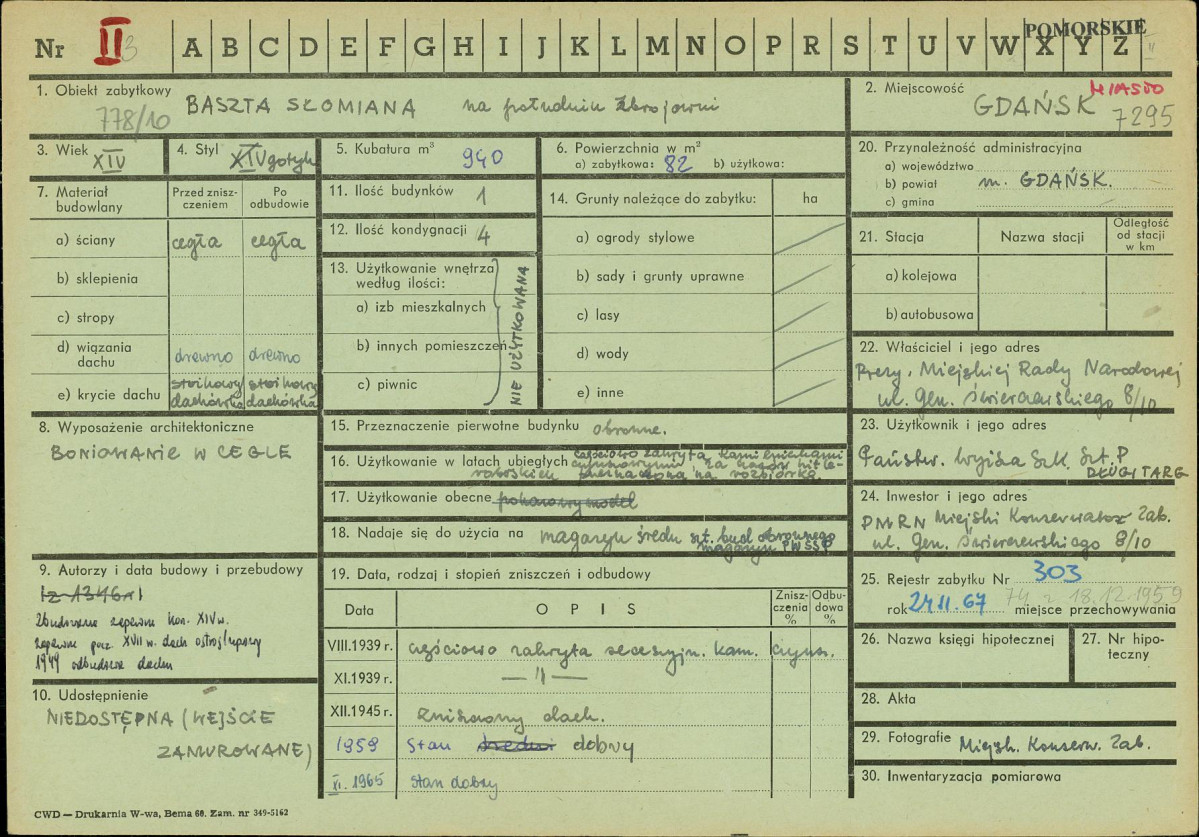 POMORSKIE
Nr II 3 A B C D E F G H I J K L M N O P R S T U V W X Y Z
1. Obiekt zabytkowy BASZTA SŁOMIANA na południu Zbrojowni
778/10
2. Miejscowość MIASTO
GDAŃSK 7295
3. Wiek XIV
4. Styl XIV gotyk
5. Kubatura m³ 940
6. Powierzchnia w m²
a) zabytkowa: 82 b) użytkowa:
7. Materiał budowlany
Przed zniszczeniem
Po odbudowie
a) ściany cegła cegła
b) sklepienia
c) stropy
d) wiązania dachu drewno drewno
e) krycie dachu stożkowy dachówka stożkowy dachówka
8. Wyposażenie architektoniczne
BONIOWANIE W CEGLE
9. Autorzy i data budowy i przebudowy
z 1346 r
Zbudowana zapewne kon. XIV w.
zapewne pocz. XVII w. dach ostrosłupowy
1949 odbudowa dachu
10. Udostępnienie
NIEDOSTĘPNA (WEJŚCIE
ZAMUROWANE)
11. Ilość budynków 1
12. Ilość kondygnacji 4
13. Użytkowanie wnętrza według ilości:
a) izb mieszkalnych
b) innych pomieszczeń
c) piwnic
NIE UŻYTKOWANA
14. Grunty należące do zabytku: ha
a) ogrody stylowe
b) sady i grunty uprawne
c) lasy
d) wody
e) inne
15. Przeznaczenie pierwotne budynku obronne.
16. Użytkowanie w latach ubiegłych częściowo zakryta kamieniczkami
czynszowymi za czasów hitle-
rowskich przeznaczona na rozbiórkę.
17. Użytkowanie obecne
18. Nadaje się do użycia na magazyn średn. szt. bud obronnego
magazyn PWSSP
19. Data, rodzaj i stopień zniszczeń i odbudowy
Data OPIS Zniszczenia % Odbudowa %
VIII.1939 r. częściowo zakryta secesyjn. kam. czyns.
XI.1939 r. — " —
XII.1945 r. zniszczony dach.
1959 Stan średni dobry
XI. 1965 stan dobry
20. Przynależność administracyjna
a) województwo
b) powiat m. GDAŃSK.
c) gmina
21. Stacja Nazwa stacji Odległość od stacji w km
a) kolejowa
b) autobusowa
22. Właściciel i jego adres
Prezy. Miejskiej Rady Narodowej
ul. Gen. Świerczewskiego 8/10
23. Użytkownik i jego adres
Państw. Wyższa Szk. Szt. P
DŁUGI TARG
24. Inwestor i jego adres
PMRN Miejski Konserwator Zab.
ul. Gen. Świerczewskiego 8/10
25. Rejestr zabytku Nr 303
74 z 18.12.1959
rok 24 II. 67 miejsce przechowywania
26. Nazwa księgi hipotecznej
27. Nr hipoteczny
28. Akta
29. Fotografie Miejsk. Konserw. Zab.
30. Inwentaryzacja pomiarowa
CWD — Drukarnia W-wa, Bema 60. Zam. nr 349-5162